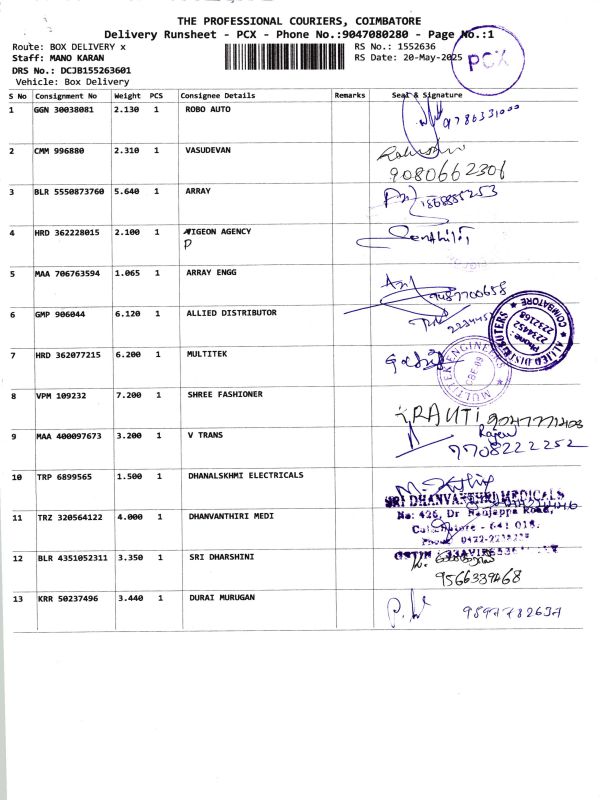 THE PROFESSIONAL COURIERS, COIMBATORE
Delivery Runsheet - PCX - Phone No.:9047080280 - Page No.:1
Route: BOX DELIVERY x RS No.: 1552636
Staff: MANO KARAN RS Date: 20-May-2025
DRS No.: DCJB155263601
Vehicle: Box Delivery
PCX
S No Consignment No Weight PCS Consignee Details Remarks Seal & Signature
1 GGN 30038081 2.130 1 ROBO AUTO 9786331000
2 CMM 996880 2.310 1 VASUDEVAN
9080662306
3 BLR 5550873760 5.640 1 ARRAY
4 HRD 362228015 2.100 1 PIGEON AGENCY
P
5 MAA 706763594 1.065 1 ARRAY ENGG
9487700658
6 GMP 906044 6.120 1 ALLIED DISTRIBUTOR
ALLIED DISTRIBUTERS
COIMBATORE
Phone:
2234452
2232168
7 HRD 362077215 6.200 1 MULTITEK
MULTITEK ENGINEERS
CBE-09
8 VPM 109232 7.200 1 SHREE FASHIONER
9 MAA 400097673 3.200 1 V TRANS
Rajew
7708222252
10 TRP 6899565 1.500 1 DHANALSKHMI ELECTRICALS
SRI DHANVANTHIRI MEDICALS
11 TRZ 320564122 4.000 1 DHANVANTHIRI MEDI
No: 426, Dr Nanjappa Road,
Coimbatore - 641 018.
12 BLR 4351052311 3.350 1 SRI DHARSHINI
9566339468
13 KRR 50237496 3.440 1 DURAI MURUGAN